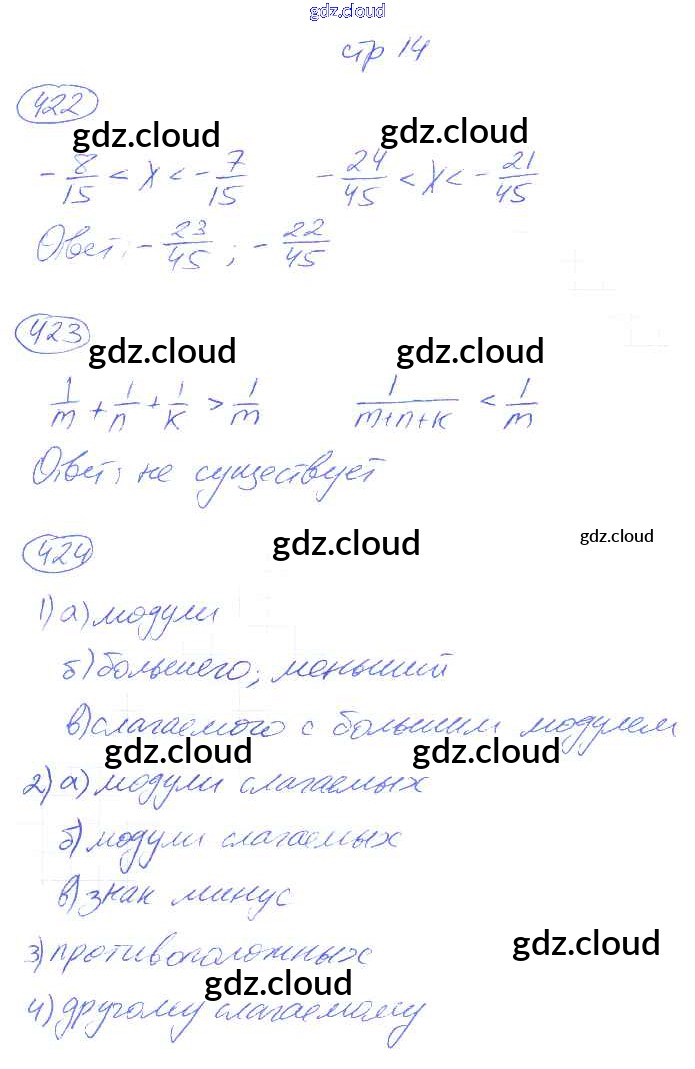 gdz.cloud
стр 14
422
gdz.cloud gdz.cloud
-8/15 < x < -7/15 -24/45 < x < -21/45
Ответ: -23/45 ; -22/45
423
gdz.cloud gdz.cloud
1/m + 1/n + 1/k > 1/m 1/(m+n+k) < 1/m
Ответ: не существует
424 gdz.cloud gdz.cloud
1) а) модули
б) большего; меньший
в) слагаемого с большим модулем
gdz.cloud gdz.cloud
2) а) модули слагаемых
б) модули слагаемых
в) знак минус
gdz.cloud
3) противоположных
gdz.cloud
4) другому слагаемому